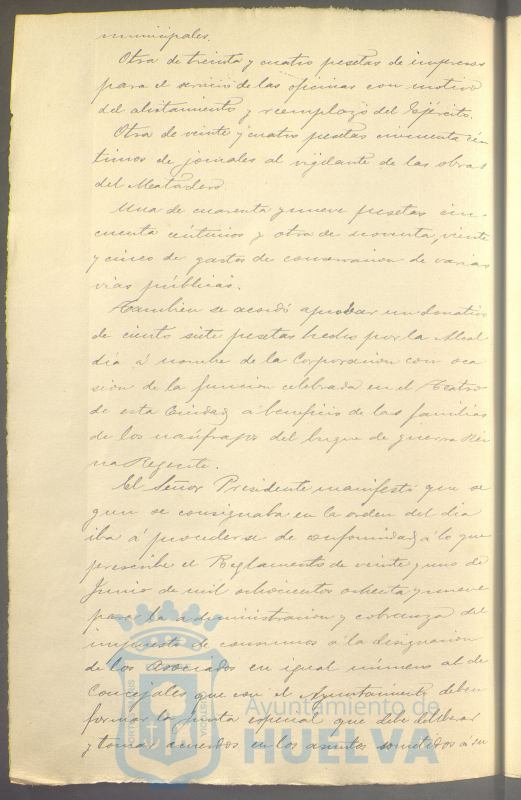 municipales.
Otra de treinta y cuatro pesetas de impresos
para el servicio de las oficinas con motivo
del alistamiento y reemplazo del Ejército.
Otra de veinte y cuatro pesetas cincuenta cén
timos de jornales al vigilante de las obras
del Matadero.
Una de cuarenta y nueve pesetas cin-
cuenta céntimos y otra de noventa, veinte
y cinco de gastos de conservacion de varias
vias públicas.
Tambien se acordó aprobar un donativo
de ciento siete pesetas hecho por la Alcal
día á nombre de la Corporacion con oca
sion de la funcion celebrada en el Teatro
de esta Ciudad á beneficio de las familias
de los naúfragos del buque de guerra Rei
na Regente.
El Señor Presidente manifestó que se
gun se consignaba en la orden del dia
iba á procederse de conformidad á lo que
prescribe el Reglamento de veinte y uno de
Junio de mil ochocientos ochenta y nueve
para la administracion y cobranza del
impuesto de consumos á la designacion
de los asociados en igual número al de
Concejales que con el Ayuntamiento deben
formar la Junta especial que debe deliberar
y tomar acuerdos en los asuntos sometidos á su
Ayuntamiento de
HUELVA